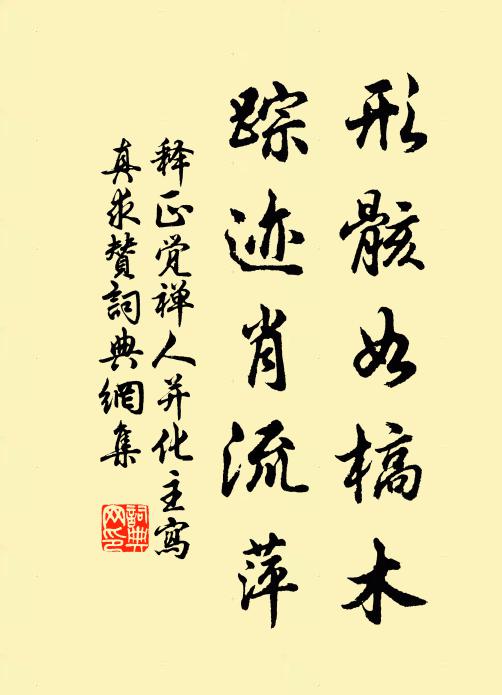 形骸如槁木
踪迹肖流萍
释正觉禅人并化主寫
真求赞詞典網集
詞典
网印